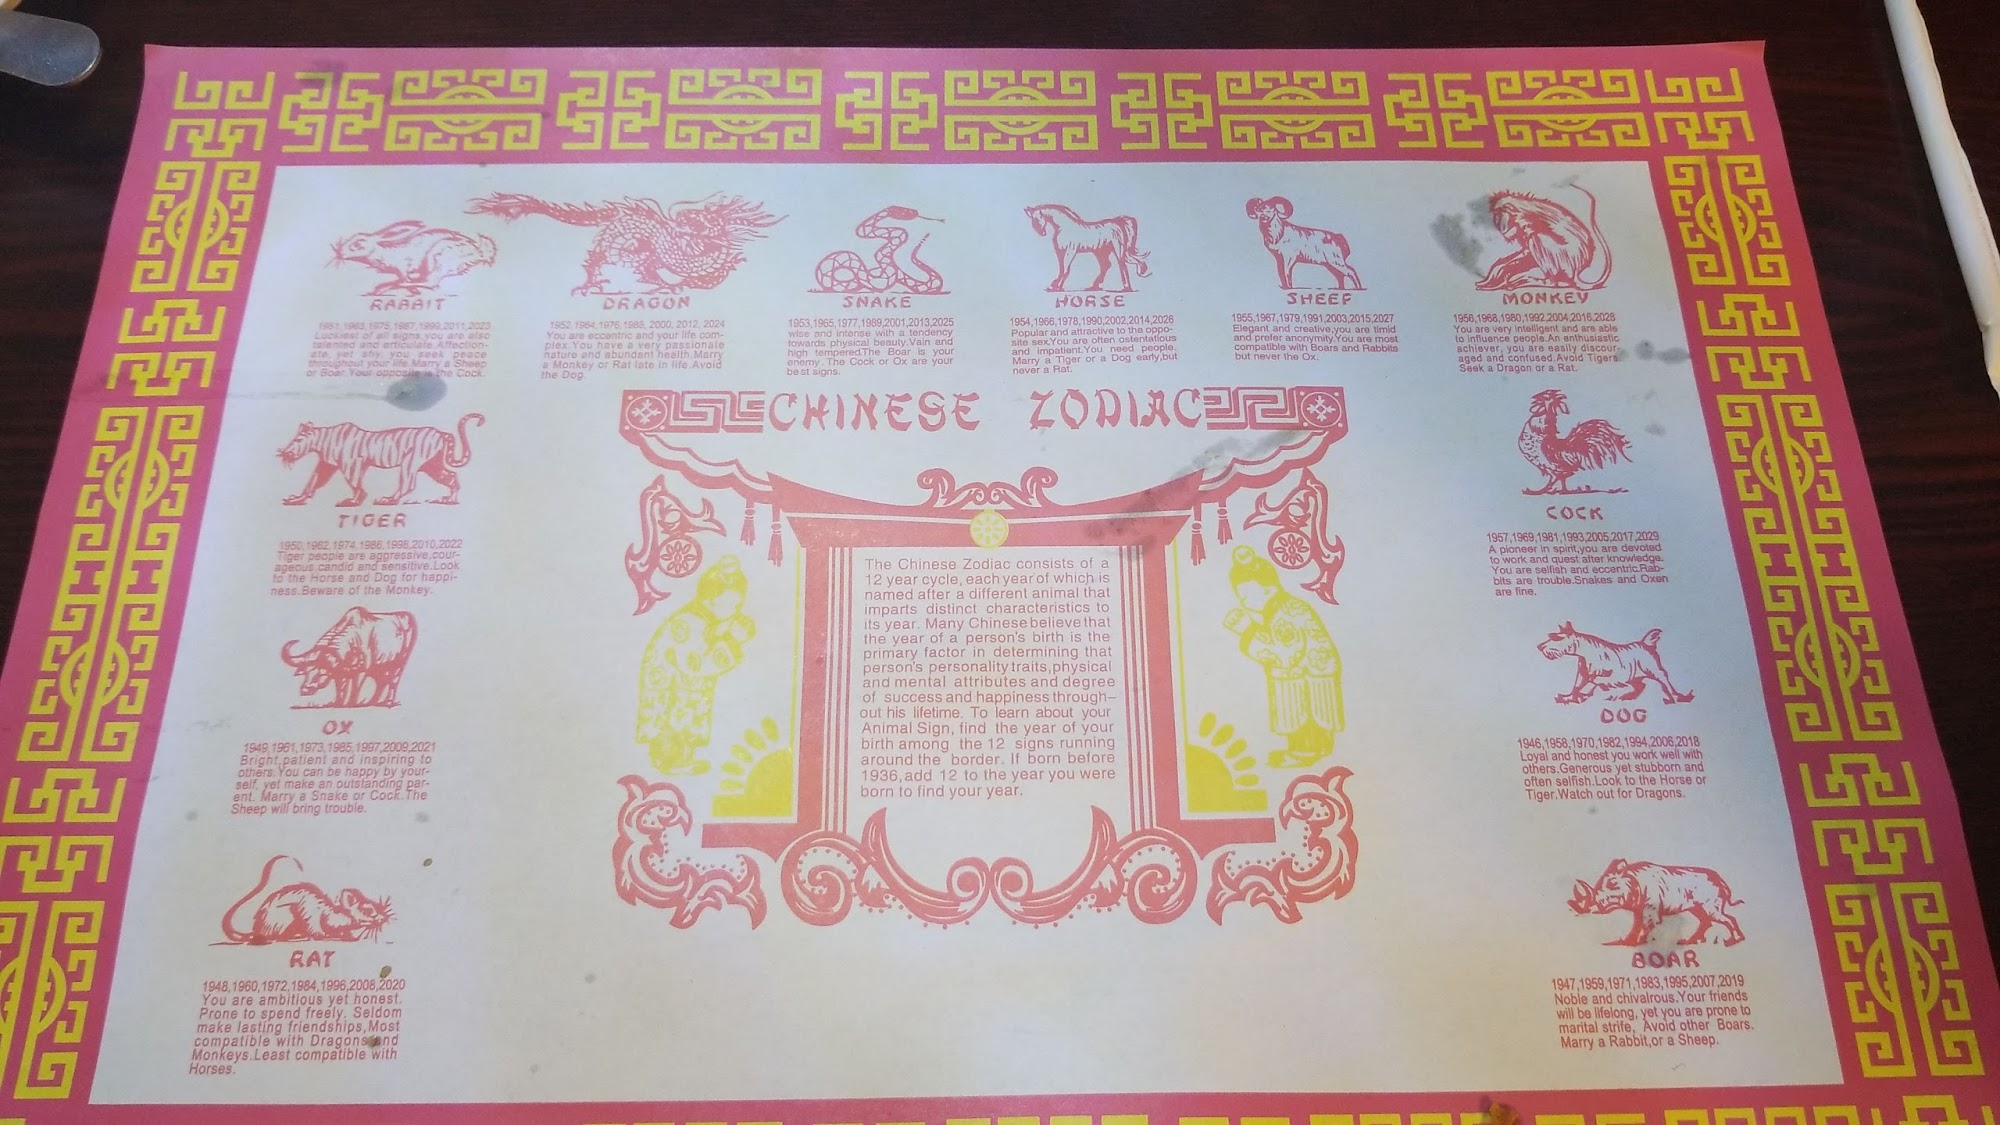 RABBIT
1951,1963,1975,1987,1999,2011,2023
Luckiest of all signs, you are also
talented and articulate. Affection-
ate, yet shy, you seek peace
throughout your life. Marry a Sheep
or Boar. Your opposite is the Cock.
DRAGON
1952,1964,1976,1988, 2000, 2012, 2024
You are eccentric and your life com-
plex. You have a very passionate
nature and abundant health. Marry
a Monkey or Rat late in life. Avoid
the Dog.
SNAKE
1953,1965,1977,1989,2001,2013,2025
wise and intense with a tendency
towards physical beauty. Vain and
high tempered.The Boar is your
enemy. The Cock or Ox are your
best signs.
HORSE
1954,1966,1978,1990,2002,2014,2026
Popular and attractive to the oppo-
site sex.You are often ostentatious
and impatient.You need people.
Marry a Tiger or a Dog early,but
never a Rat.
SHEEP
1955,1967,1979,1991,2003,2015,2027
Elegant and creative,you are timid
and prefer anonymity.You are most
compatible with Boars and Rabbits
but never the Ox.
MONKEY
1956,1968,1980,1992,2004,2016,2028
You are very intelligent and are able
to influence people.An enthusiastic
achiever, you are easily discour-
aged and confused.Avoid Tigers.
Seek a Dragon or a Rat.
TIGER
1950,1962,1974,1986,1998,2010,2022
Tiger people are aggressive,cour-
ageous,candid and sensitive.Look
to the Horse and Dog for happi-
ness.Beware of the Monkey.
OX
1949,1961,1973,1985,1997,2009,2021
Bright,patient and inspiring to
others.You can be happy by your-
self, yet make an outstanding par-
ent. Marry a Snake or Cock.The
Sheep will bring trouble.
RAT
1948,1960,1972,1984,1996,2008,2020
You are ambitious yet honest.
Prone to spend freely. Seldom
make lasting friendships,Most
compatible with Dragons and
Monkeys.Least compatible with
Horses.
CHINESE ZODIAC
The Chinese Zodiac consists of a
12 year cycle, each year of which is
named after a different animal that
imparts distinct characteristics to
its year. Many Chinese believe that
the year of a person's birth is the
primary factor in determining that
person's personality traits,physical
and mental attributes and degree
of success and happiness through-
out his lifetime. To learn about your
Animal Sign, find the year of your
birth among the 12 signs running
around the border. If born before
1936,add 12 to the year you were
born to find your year.
COCK
1957,1969,1981,1993,2005,2017,2029
A pioneer in spirit,you are devoted
to work and quest after knowledge.
You are selfish and eccentric.Rab-
bits are trouble.Snakes and Oxen
are fine.
DOG
1946,1958,1970,1982,1994,2006,2018
Loyal and honest you work well with
others.Generous yet stubborn and
often selfish.Look to the Horse or
Tiger.Watch out for Dragons.
BOAR
1947,1959,1971,1983,1995,2007,2019
Noble and chivalrous.Your friends
will be lifelong, yet you are prone to
marital strife, Avoid other Boars.
Marry a Rabbit,or a Sheep.